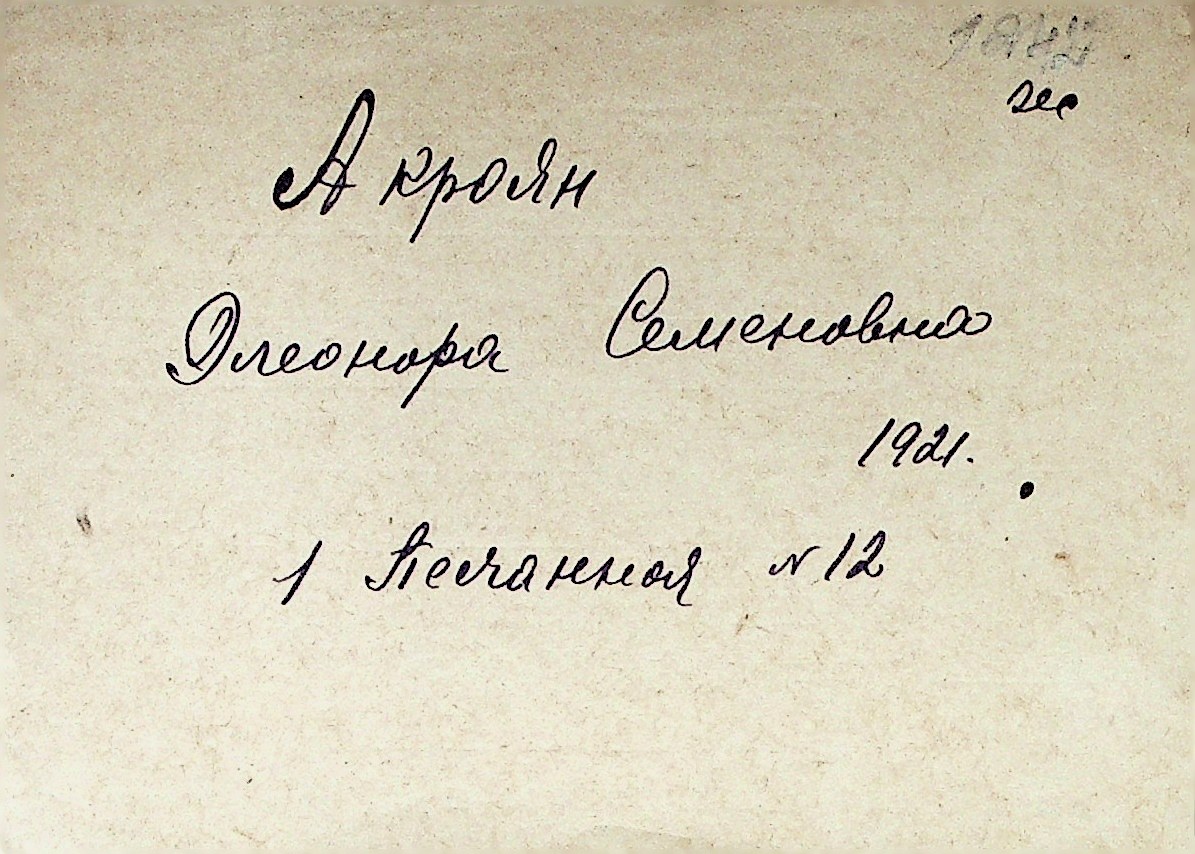 Акроян
Элеонора Семеновна
1921.
1 Песчанная № 12